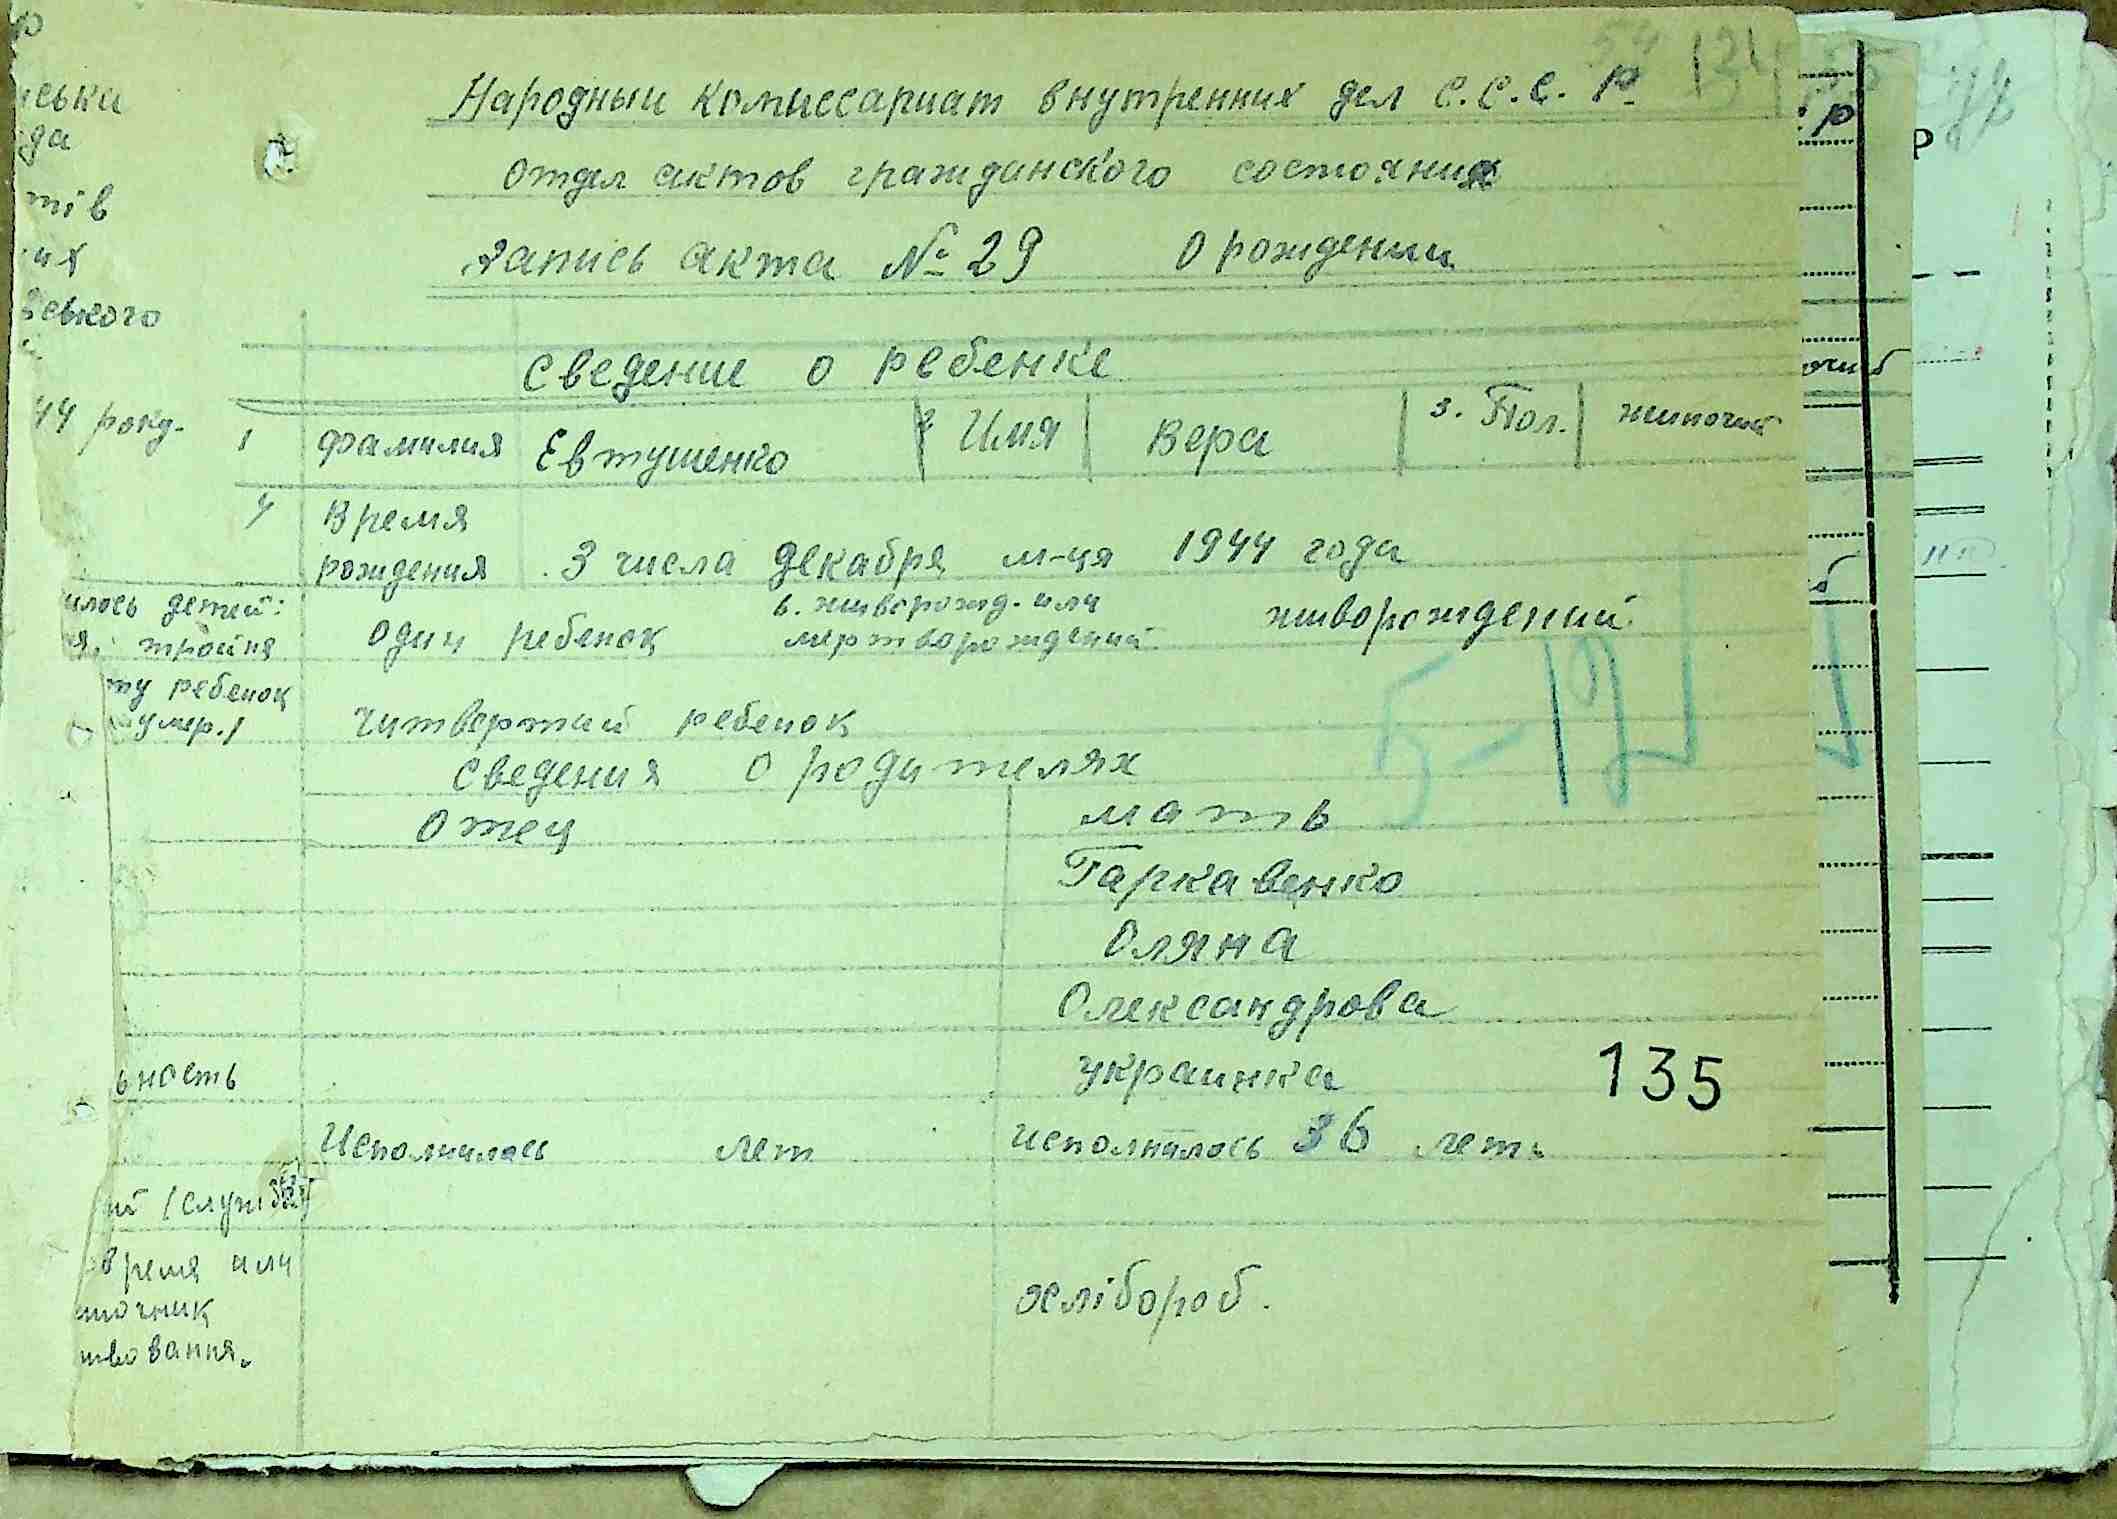 Народный комиссариат внутренних дел С.С.С.Р.
отдел актов гражданского состояния
запись акта № 29 О рождении
Сведение о ребенке
1 фамилия Евтушенко 2 Имя Вера 3. Пол. жиночий
4 Время
рождения 3 числа декабря м-ця 1944 года
илось детей: один ребенок 6. живорожд. или
мертворождений живорождений
тройня
ту ребенок
умер./ читвертий ребенок
Сведения о родителях
Отец мать
Гаркавенко
Оляна
Олександрова
ьность украинка
135
Исполнилось лет исполнилось 36 леть
время или
точник
твования. хлібороб.
5-12
ську
да
тів
их
ського
44 року.